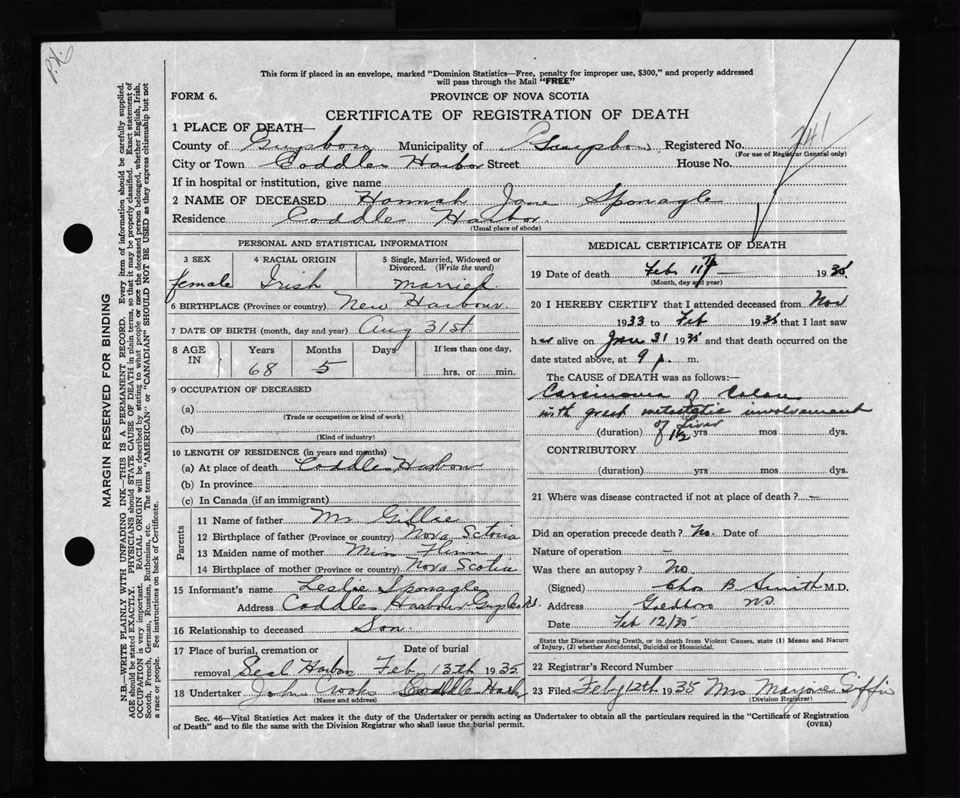 This form if placed in an envelope, marked "Dominion Statistics—Free, penalty for improper use, $300," and properly addressed
will pass through the Mail "FREE"
FORM 6.
PROVINCE OF NOVA SCOTIA
CERTIFICATE OF REGISTRATION OF DEATH
1 PLACE OF DEATH—
County of Guysboro Municipality of Guysboro Registered No. 241
(For use of Registrar General only)
City or Town Coddles Harbor Street House No.
If in hospital or institution, give name
2 NAME OF DECEASED Hannah Jane Sponagle
Residence Coddles Harbor.
(Usual place of abode)
PERSONAL AND STATISTICAL INFORMATION
3 SEX 4 RACIAL ORIGIN 5 Single, Married, Widowed or
Divorced. (Write the word)
female Irish married.
6 BIRTHPLACE (Province or country) New Harbour.
7 DATE OF BIRTH (month, day and year) Aug 31st.
8 AGE IN Years Months Days If less than one day,
68 5 hrs. or min.
9 OCCUPATION OF DECEASED
(a)
(Trade or occupation or kind of work)
(b)
(Kind of industry)
10 LENGTH OF RESIDENCE (in years and months)
(a) At place of death Coddles Harbour
(b) In province
(c) In Canada (if an immigrant)
Parents
11 Name of father Mr Gillie
12 Birthplace of father (Province or country) Nova Sctoia
13 Maiden name of mother Miss Flinn
14 Birthplace of mother (Province or country) Nova Scotia
15 Informant's name Leslie Sponagle
Address Coddles Harbour Guys Co N.S.
16 Relationship to deceased Son.
17 Place of burial, cremation or Date of burial
removal Seal Harbor Feb 13th 1935
18 Undertaker John Crooks Coddle Harbor
(Name and address)
MEDICAL CERTIFICATE OF DEATH
19 Date of death Feb 11th 1935
(Month, day and year)
20 I HEREBY CERTIFY that I attended deceased from Nov
1933 to Feb 1935 that I last saw
her alive on Jan 31 1935 and that death occurred on the
date stated above, at 9 p. m.
The CAUSE OF DEATH was as follows:—
Carcinoma of Colon
with great metastatic involvement
of Liver
(duration) 1½ yrs mos dys.
CONTRIBUTORY
(duration) yrs mos dys.
21 Where was disease contracted if not at place of death? —
Did an operation precede death? No. Date of
Nature of operation —
Was there an autopsy? No
(Signed) Chas B Smith M.D.
Address Goldboro NS.
Date Feb 12/35
State the Disease causing Death, or in death from Violent Causes, state (1) Means and Nature
of Injury, (2) whether Accidental, Suicidal or Homicidal.
22 Registrar's Record Number
23 Filed Feby 12th 1935 Mrs Marjorie Giffin
(Division Registrar)
Sec. 46—Vital Statistics Act makes it the duty of the Undertaker or person acting as Undertaker to obtain all the particulars required in the "Certificate of Registration
of Death" and to file the same with the Division Registrar who shall issue the burial permit. (OVER)
MARGIN RESERVED FOR BINDING
N.B.—WRITE PLAINLY WITH UNFADING INK—THIS IS A PERMANENT RECORD. Every item of information should be carefully supplied.
AGE should be stated EXACTLY. PHYSICIANS should STATE CAUSE OF DEATH in plain terms, so that it may be properly classified. Exact statement of
OCCUPATION is very important. RACIAL ORIGIN will be described by stating to what people or race the deceased person belonged, whether English, Irish,
Scotch, French, German, Russian, Ruthenian, etc. The terms "AMERICAN" or "CANADIAN" SHOULD NOT BE USED as they express citizenship but not
a race or people. See instructions on back of Certificate.